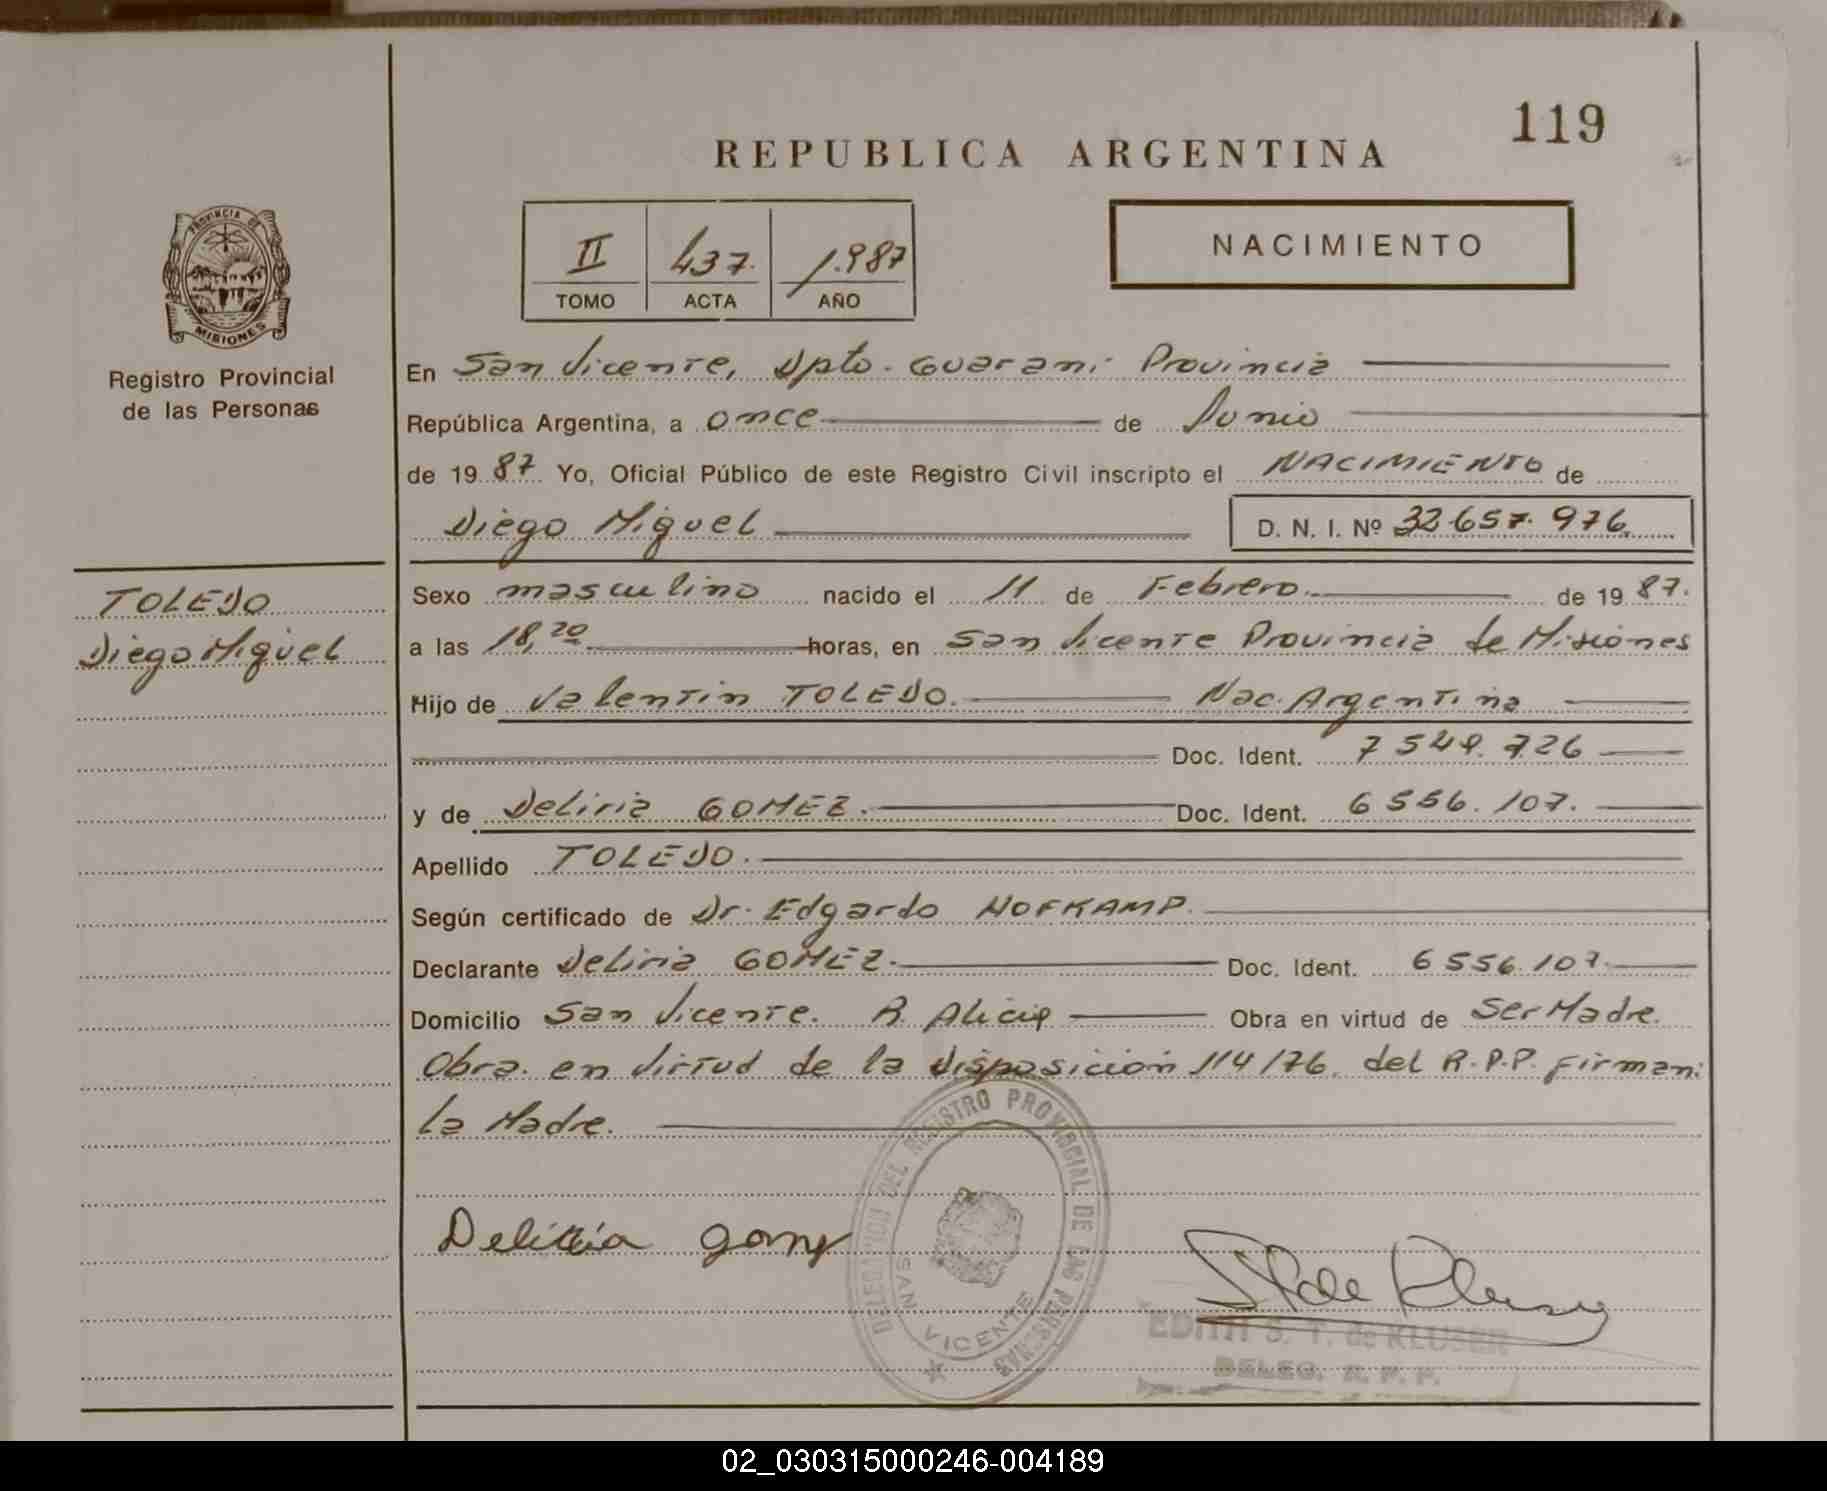 119
REPUBLICA ARGENTINA
PROVINCIA DE
MISIONES
Registro Provincial
de las Personas
II 437. 1.987
TOMO ACTA AÑO
NACIMIENTO
En San Vicente, Dpto. Guarani Provincia
República Argentina, a once de Junio
de 19 87 Yo, Oficial Público de este Registro Civil inscripto el NACIMIENTO de
Diego Miguel D. N. I. Nº 32.657.976.
TOLEDO
Diego Miguel
Sexo masculino nacido el 11 de Febrero. de 19 87.
a las 18,20 horas, en San Vicente Provincia de Misiones
Hijo de Valentin TOLEDO. Nac. Argentina
Doc. Ident. 7 549.726
y de Deliria GOMEZ. Doc. Ident. 6 556.107.
Apellido TOLEDO.
Según certificado de Dr. Edgardo HOFKAMP.
Declarante Deliria GOMEZ. Doc. Ident. 6 556.107
Domicilio San Vicente. Obra en virtud de Ser Madre.
Obra. en Virtud de la Disposición 114/76. del R.P.P. firman:
la Madre.
DELEGACION DEL REGISTRO PROVINCIAL DE LAS PERSONAS
SAN VICENTE
EDITH S. T. de KLUSER
DELEG. R. P. P.
02_030315000246-004189